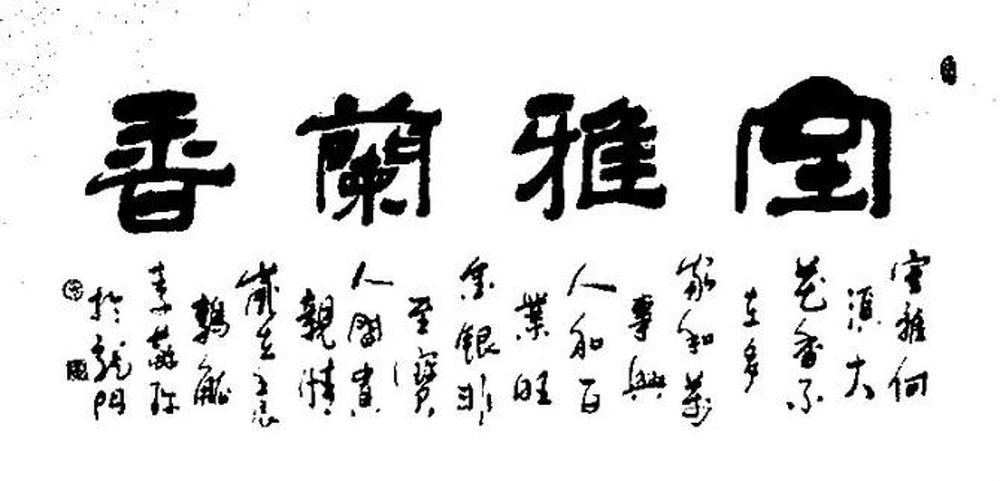 室雅蘭香
室雅何
須大
花香不
在多
家和萬
事興
人和百
業旺
金銀非
至寶
人間貴
親情
歲在壬辰
於龍門